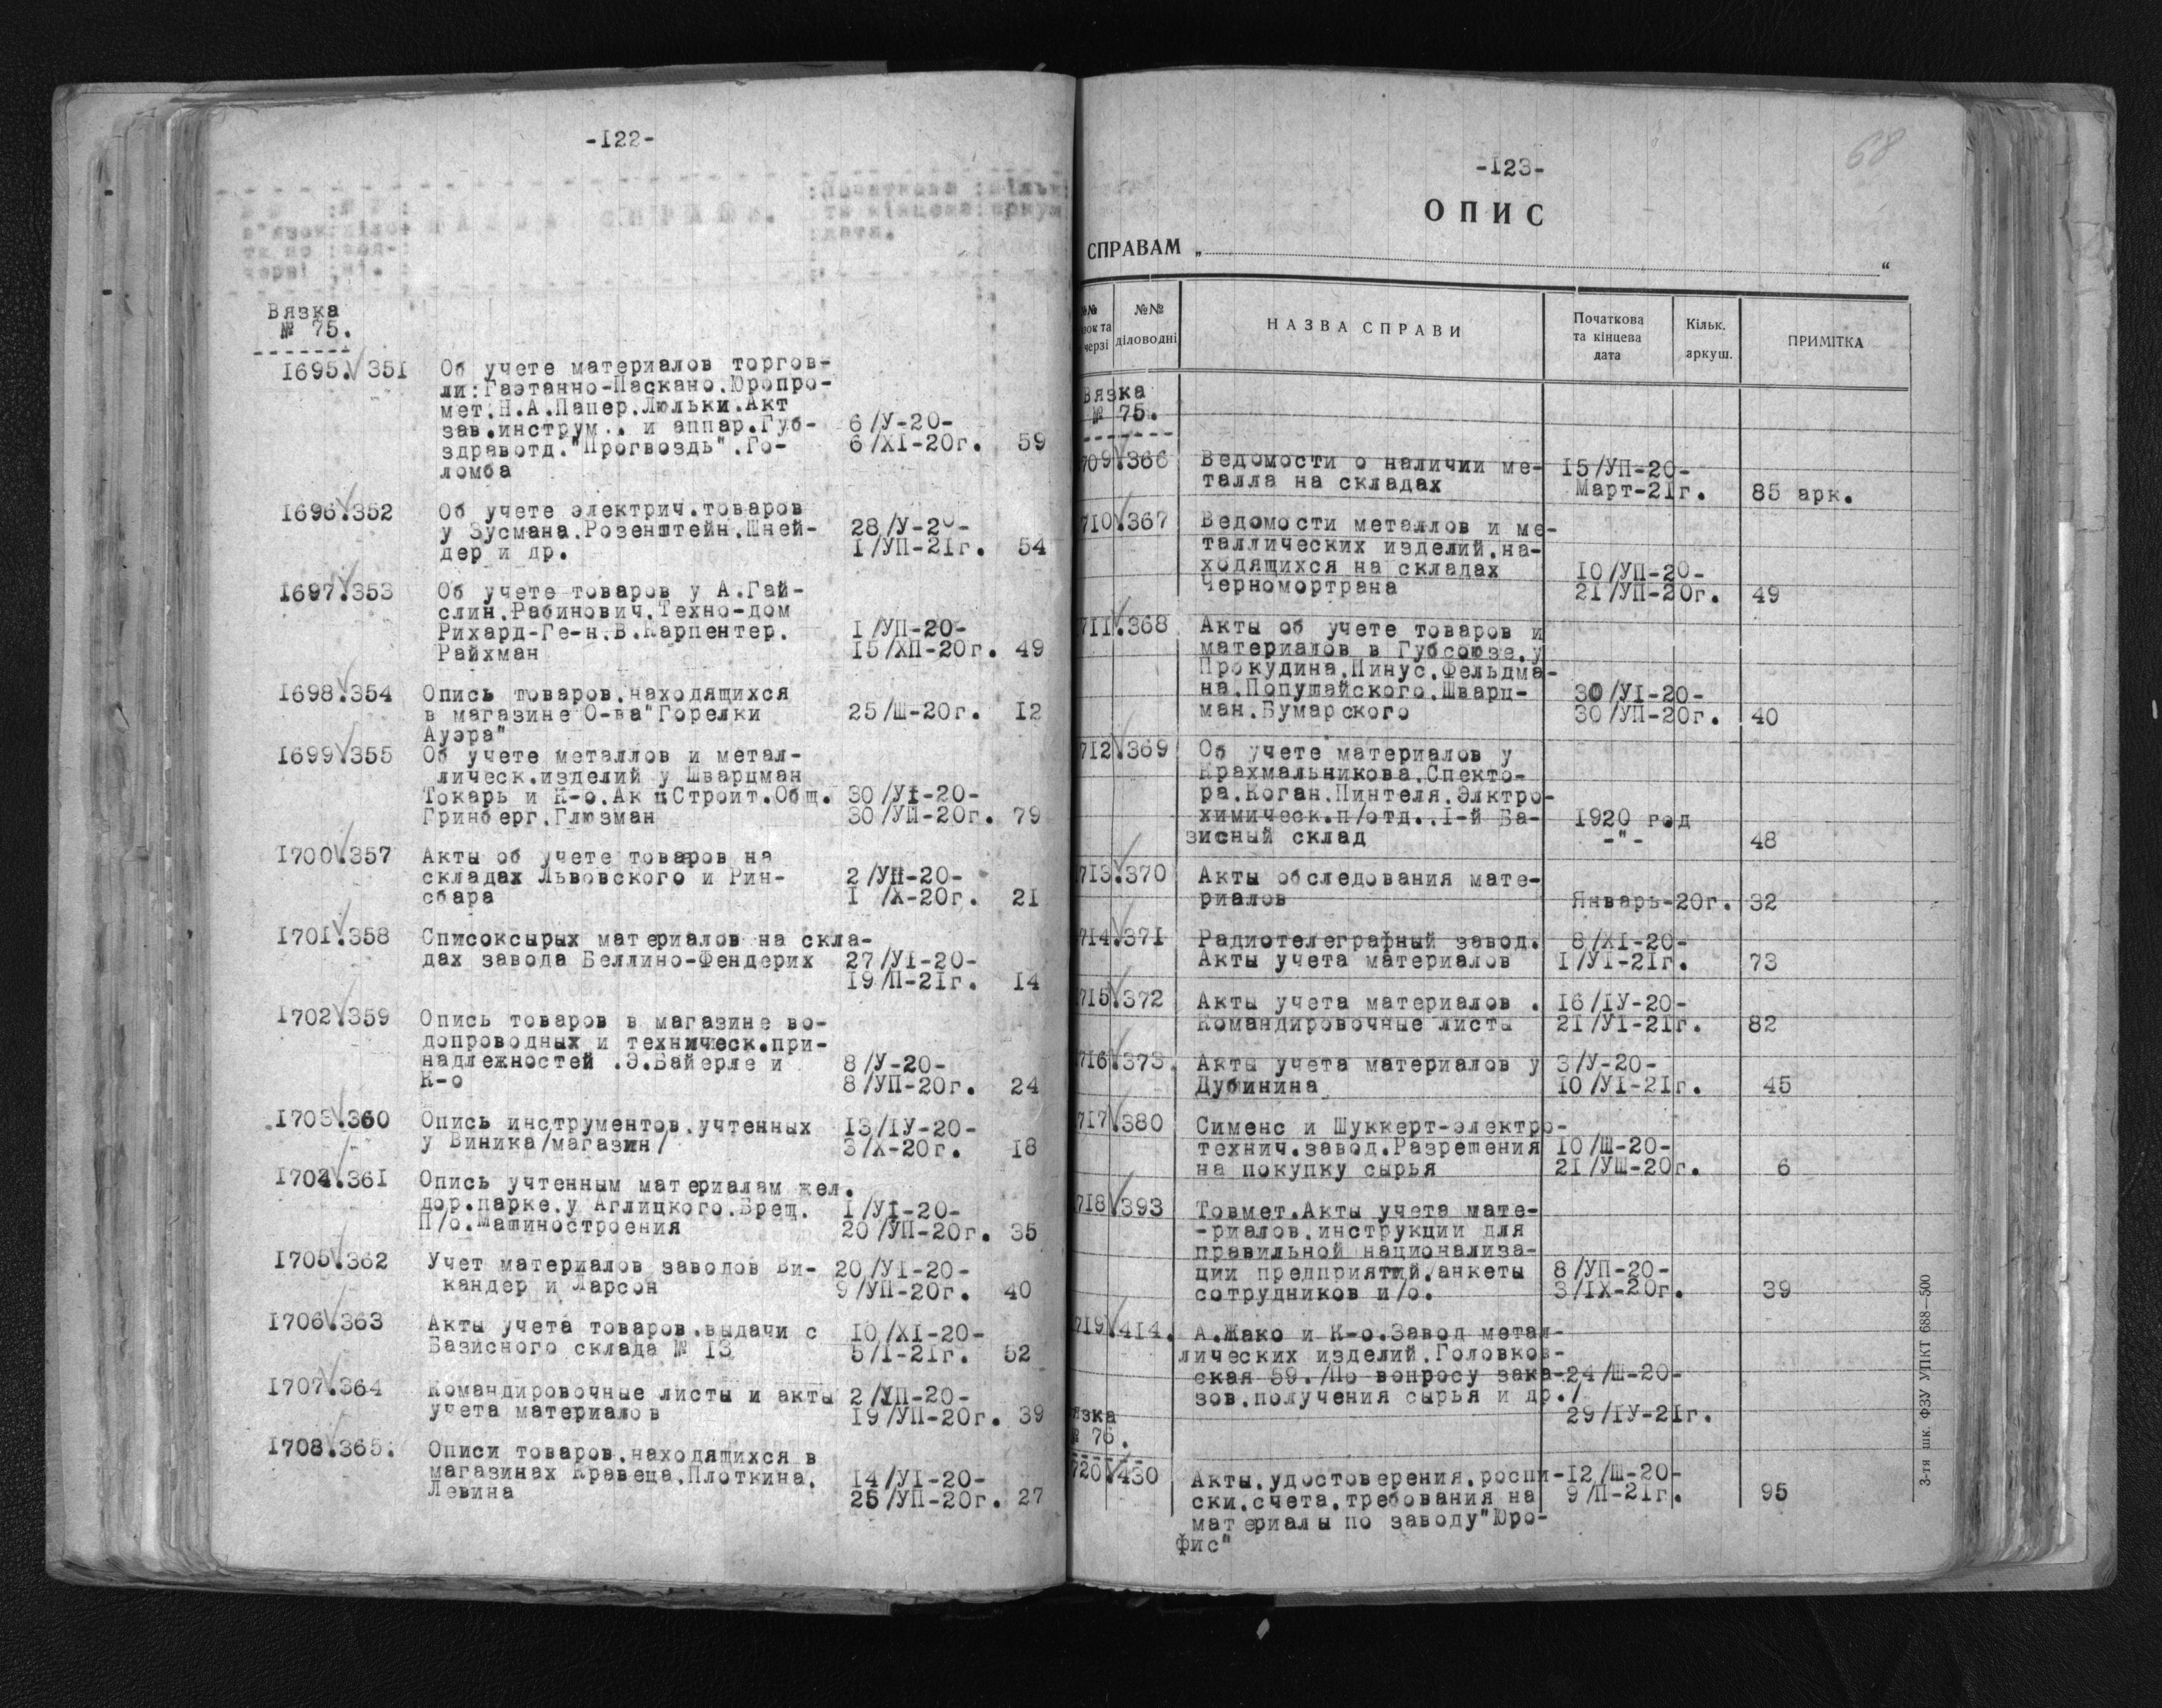 -122-
Вязка
№ 75.
1695. 351 Об учете материалов торгов-
ли:Гаэтанно-Паскано.Юропро-
мет.Н.А.Папер.Люльки.Акт
зав.инструм.. и аппар.Губ- 6/У-20-
здравотд."Прогвоздь".Го- 6/XI-20г. 59
ломба
1696.352 Об учете электрич.товаров
у Зусмана.Розенштейн.Шней- 28/У-20-
дер и др. I/УП-21г. 54
1697.353 Об учете товаров у А.Гай-
слин.Рабинович.Техно-дом
Рихард-Ге-н.В.Карпентер. I/УП-20-
Райхман 15/ХП-20г. 49
1698.354 Опись товаров.находящихся
в магазине О-ва"Горелки 25/Ш-20г. 12
Ауэра"
1699.355 Об учете металлов и метал-
лическ.изделий у Шварцман
Токарь и К-о.Ак ц.Строит.Общ. 30/УI-20-
Гринберг.Глюзман 30/УП-20г. 79
1700.357 Акты об учете товаров на
складах Львовского и Рин- 2/УП-20-
сбара I /Х-20г. 21
1701.358 Списоксырых материалов на скла-
дах завода Беллино-Фендерих 27/УI-20-
19/П-21г. 14
1702.359 Опись товаров в магазине во-
допроводных и техническ.при-
надлежностей .Э.Байерле и 8/У-20-
К-о 8/УП-20г. 24
1703.360 Опись инструментов.учтенных 13/IУ-20-
у Виника/магазин/ 3/Х-20г. 18
1704.361 Опись учтенным материалам жел.
дор.парке.у Аглицкого.Брещ. I/УI-20-
П/о.Машиностроения 20/УП-20г. 35
1705.362 Учет материалов заводов Ви- 20/УI-20-
кандер и Ларсон 9/УП-20г. 40
1706.363 Акты учета товаров.выдачи с 10/XI-20-
Базисного склада № 13 5/I-21г. 52
1707.364 Командировочные листы и акты 2/УП-20-
учета материалов 19/УП-20г. 39
1708.365. Описи товаров.находящихся в
магазинах Кравеца.Плоткина. 14/УI-20-
Левина 25/УП-20г. 27
68
-123-
ОПИС
СПРАВАМ „ “
№№ №№ НАЗВА СПРАВИ Початкова Кільк. ПРИМІТКА
діловодні та кінцева аркуш.
дата
Вязка
№ 75.
709.366 Ведомости о наличии ме- 15/УП-20-
талла на складах Март-21г. 85 арк.
710.367 Ведомости металлов и ме-
таллических изделий.на-
ходящихся на складах 10/УП-20-
Черномортрана 21/УП-20г. 49
711.368 Акты об учете товаров и
материалов в Губсоюзе.у
Прокудина.Пинус.Фельдма-
на.Попушайского.Шварц- 30/УI-20-
ман.Бумарского 30/УП-20г. 40
712.369 Об учете материалов у
Крахмальникова.Спекто-
ра.Коган.Пинтеля.Элктро-
химическ.п/отд..I-й Ба- 1920 год
зисный склад -"- 48
713.370 Акты обследования мате-
риалов Январь-20г. 32
714.371 Радиотелеграфный завод. 8/XI-20-
Акты учета материалов I/УI-21г. 73
715.372 Акты учета материалов . 16/IУ-20-
Командировочные листы 21/УI-21г. 82
716.373. Акты учета материалов у 3/У-20-
Дубинина 10/УI-21г. 45
717.380 Сименс и Шуккерт-электро-
технич.завод.Разрешения 10/Ш-20-
на покупку сырья 21/УШ-20г. 6
718.393 Товмет.Акты учета мате-
-риалов.инструкции для
правильной национализа-
ции предприятий/анкеты 8/УП-20-
сотрудников и/о. 3/IХ-20г. 39
719.414. А.Жако и К-о.Завод метал-
лических изделий.Головков-
ская 59./По вопросу зака-24/Ш-20-
зов.получения сырья и др./
29/IУ-21г.
язка
№ 76.
720.430 Акты.удостоверения.роспи-12/Ш-20-
ски.счета.требования на 9/П-21г. 95
материалы по заводу"Юро-
фис"
3-тя шк. ФЗУ УПКТ 688—500